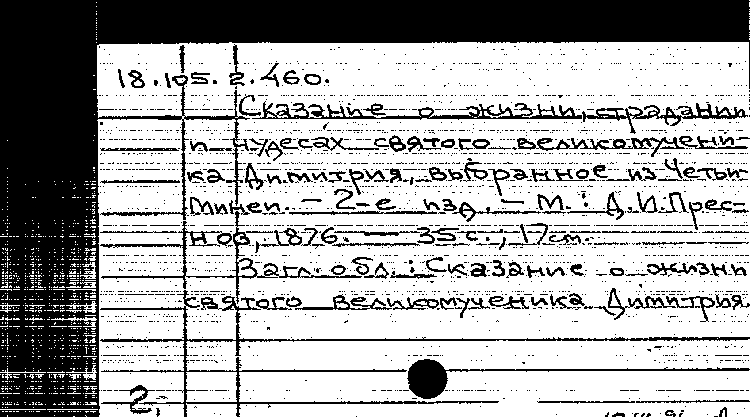 18.105.2.460.
Сказание о жизни, страдании
и чудесах святого великомучени-
ка Димитрия, выбранное из Четьи
Минеи. — 2-е изд. — М. : Д.И.Прес-
нов, 1876. — 35 с.; 17 см.
Загл. обл. : Сказание о жизни
святого великомученика Димитрия.
2;